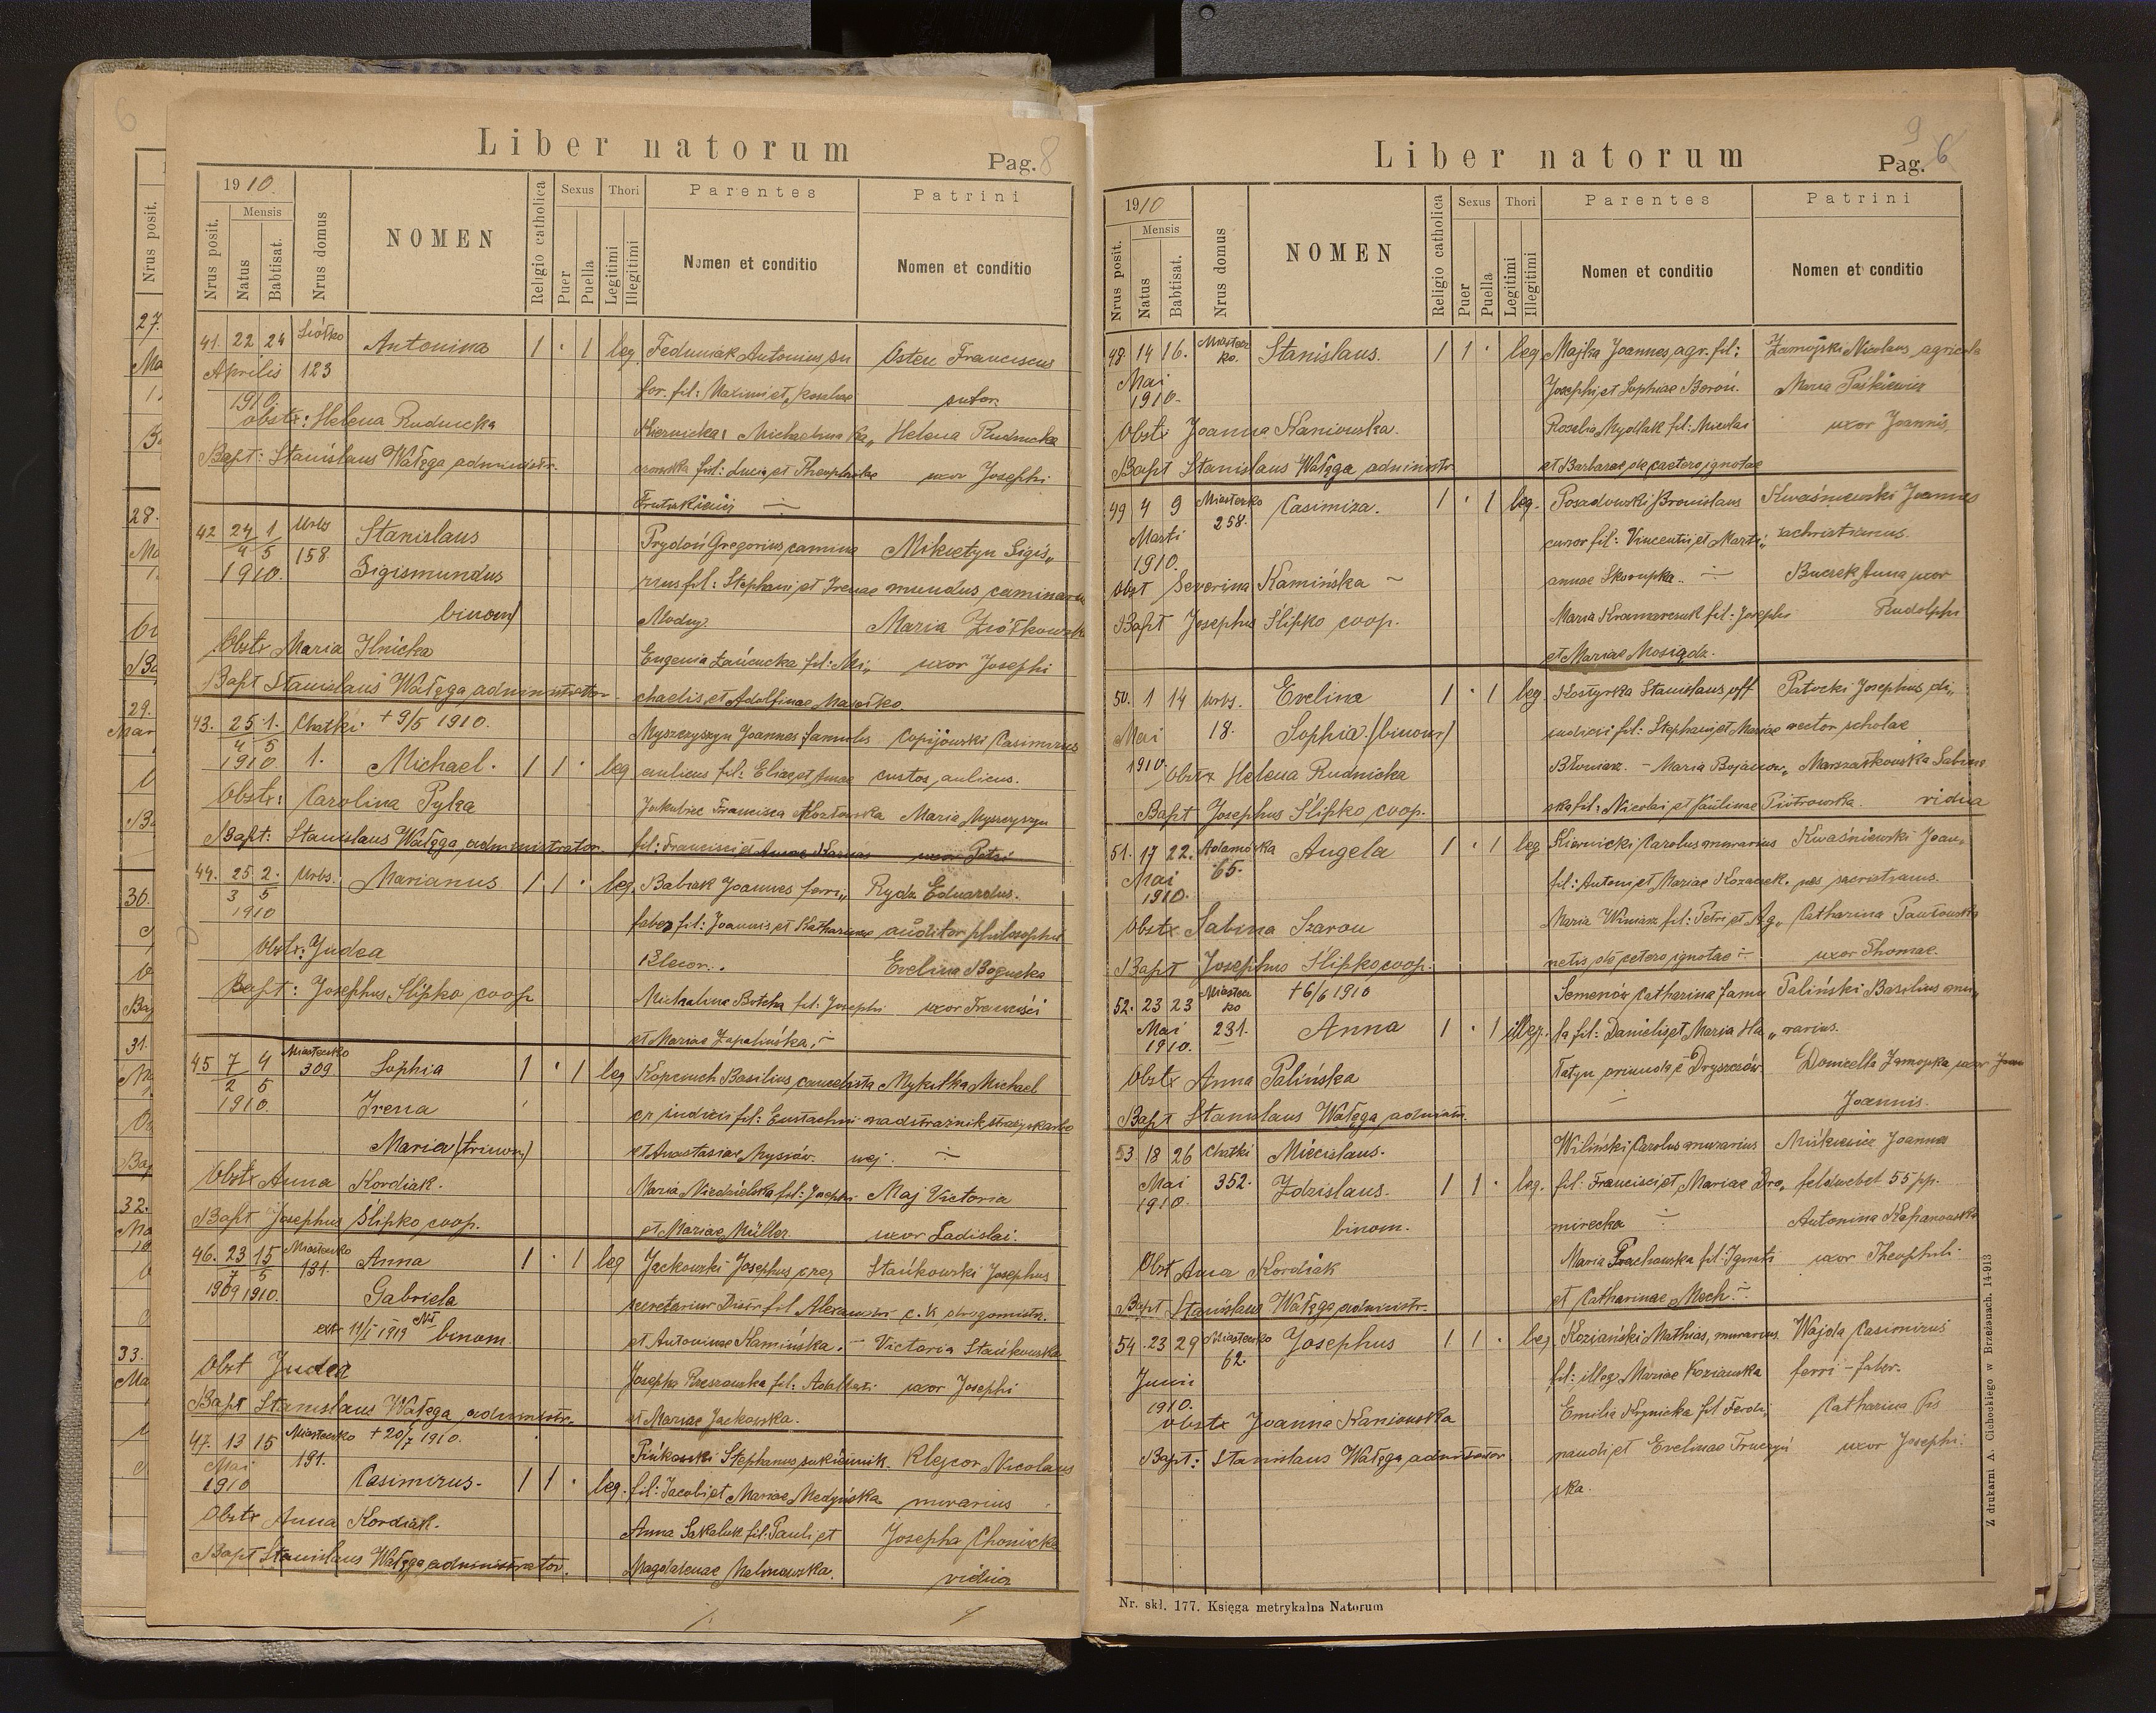 Liber natorum
Pag. 8
1910.
Nrus posit.
Mensis
Natus
Babtisat.
Nrus domus
NOMEN
Religio catholica
Sexus
Puer
Puella
Thori
Legitimi
Illegitimi
Parentes
Nomen et conditio
Patrini
Nomen et conditio
41. 22 24 Siółko Antonina 1 · 1 leg. Feduniak Antonius, su Osten Franciscus
Aprilis 123 tor. fil: Maximi et Rosaliae sutor.
1910.
obstx: Helena Rudnicka Michaelina Helena Rudnicka
Bapt: Stanislaus Wałęga administr. fil: Lucae et Theophilae uxor Josephi
42 24/4 1/5 Urbs 158 Stanislaus Prydoń Gregorius, camina Mikietyn Sigis„
1910. Sigismundus rius fil: Stephani et Irenae mundus, caminarius
binom) Modny. Maria Ziółkowska
Obstx Maria Ilnicka Eugenia Łańcucka fil: Mi„ uxor Josephi
Bapt Stanislaus Wałęga, administrator. chaelis, et Adolfinae
43. 25/4 1/5 Chatki + 9/5 1910. Myszczyszyn Joannes famulus Copijowski Casimirus
1910. 1. Michael. 1 1 · leg aulicus fil: Eliae et Annae custos, aulicus.
Obstx: Carolina Pyłza Francisca Kozłowska Maria Myszczyszyn
Bapt: Stanislaus Wałęga, administrator. fil: Francisci et Annae uxor Petri
44. 25/3 2/5 Urbs. Marianus 1 1 · leg. Babiak Joannes ferri„ Rydz Eduardus.
1910 faber fil: Joannis, et Katharinae auditor philosophiae
Obstx: Judea Evelina Bogucka
Bapt: Josephus Ślipko coop Michalina fil: Josephi uxor Francisci
et Mariae Zapalińska.
45 7/2 4/5 Miasteczko 309 Sophia 1 · 1 leg Kopciuch Basilius, cancelista Mykitka Michael
1910. Irena cr. judicii fil: Eustachii nadstrażnik, straży skarbo
Maria (trinom) et Anastasiae Mysiów. wej.
Obstx Anna Kordiak. Maria Niedzielska fil: Josephi Maj Victoria
Bapt Josephus Ślipko, coop. et Mariae Müller. uxor Ladislai.
46. 23/7 15/5 Miasteczko 131. Anna 1 · 1 leg Jackowski Josephus, Stańkowski Josephus
1909 1910. Gabriela secretarius fil. Alexandri
binom. et Antoninae Kamińska. Victoria Stańkowska
Obst Judea Josepha Rzeszowska fil: Adalberti uxor Josephi
Bapt Stanislaus Wałęga administr. et Mariae Jackowska.
47. 13 15 Miasteczko + 20/7 1910. Pińkowski Stephanus, sukiennik. Klejcor Nicolaus
Mai 191.
1910 Casimirus. 1 1 · leg. fil: Jacobi et Mariae Medyńska murarius
Obstx Anna Kordiak. Anna Sakaluk fil: Pauli et Josepha Chonicka
Bapt Stanislaus Wałęga administrator. Magdalenae Malinowska. vidua
Liber natorum
Pag. 6 9
1910
Nrus posit.
Mensis
Natus
Babtisat.
Nrus domus
NOMEN
Religio catholica
Sexus
Puer
Puella
Thori
Legitimi
Illegitimi
Parentes
Nomen et conditio
Patrini
Nomen et conditio
48 14 16. Miastecz ko. Stanislaus. 1 1 · leg Majka Joannes, agr. fil: Zamojski Nicolaus, agricola
Mai Josephi, et Sophiae Boroń. Maria Paśkiewicz
1910.
Obstx Joanna Kaniowska. Rosalia Mydlak fil: Nicolai uxor Joannis.
Bapt Stanislaus Wałęga administr et Barbarae, de caetero ignotae
49 4 9 Miasteczko 258. Casimira. 1 · 1 leg. Posadowski Bronislaus Kwaśniewski Joannes
Marti cursor fil: Vincentii, et Mari„ sachristianus.
1910. annae Skorupka. Buczek Anna uxor
Obst Severina Kamińska Maria Kramarczuk fil: Josephi Rudolphi
Bapt Josephus Ślipko coop. et Mariae Mosiądz.
50. 1 14 Urbs. Evelina 1 · 1 leg. Kostyrka Stanislaus, off Patocki Josephus, di„
Mai 18. Sophia (binom) judicii fil: Stephani, et Mariae rector scholae
1910. Obstx Helena Rudnicka Błoniarz. – Maria Bojanow„ Marszałkowska Sabina
Bapt Josephus Ślipko, coop. ska fil: Nicolai et Paulinae Piotrowska. vidua
51. 17 22. Adamówka 65. Angela 1 · 1 leg Kiernicki Carolus murarius Kwaśniewski Joan„
Mai fil: Antoni, et Mariae Kozaczek. nes sacristianus.
1910.
Obstx Sabina Szaron Maria Winiarz fil: Petri et Ag„ Catharina Pawłowska
Bapt Josephus Ślipko, coop. netis, de cetero ignotae uxor Thomae.
52. 23 23 Miastecz ko + 6/6 1910 Semenów Catharina famu Paliński Basilius mu„
Mai 231. Anna 1 · 1 illeg. la fil: Danielis, et Maria Ha„ rarius.
1910. tatyn oriunda e Dryszczów Domicella Zamojska, uxor
Obstx Anna Palińska Joannis.
Bapt Stanislaus Wałęga, administr.
53 18 26 Chatki Miecislaus. Wiliński Carolus murarius Miśkiewicz Joannes
Mai 352. Zdzislaus. 1 1 · leg. fil: Francisci, et Mariae Dro„ feldwebel 55 pp.
1910. binom. mirecka Antonina Kapanowska
Obst Anna Kordiak Maria Prachowska fil: Ignati uxor Theophili.
Bapt Stanislaus Wałęga, administr. et Catharinae Mech.
54. 23 29 Miasteczko 62. Josephus 1 1 · leg. Koziański Mathias, murarius Wajda Casimirus
Junii fil: illeg. Mariae Kozianska ferri – faber.
1910.
Obstx Joanna Kaniowska Emilia Krynicka fil Ferdi„ Catharina Pis
Bapt: Stanislaus Wałęga, administrator. nandi, et Evelinae Truczyń uxor Josephi.
ska.
Nr. skł. 177. Księga metrykalna Natorum
Z drukarni A. Cichockiego w Brzeżanach. 14.913
27.
28.
29.
30.
31.
32.
33.